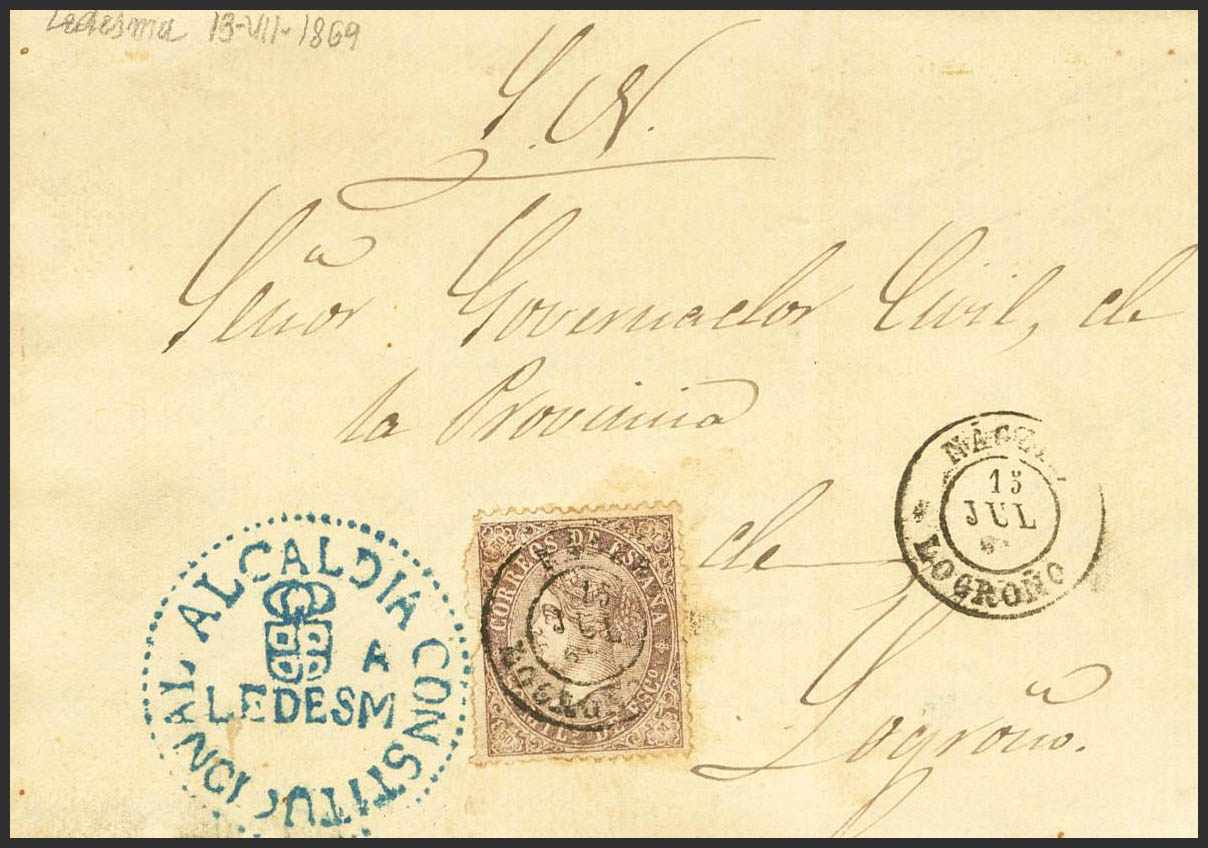 Ledesma 13-VII-1869
S. N.
Señor Governador Civil, de
la Provincia
de
Logroño.
LOGROÑO
15
JUL
ALCALDIA CONSTITUCIONAL
A
LEDESM
CORREOS DE ESPAÑA
15
JUL
LOGROÑO